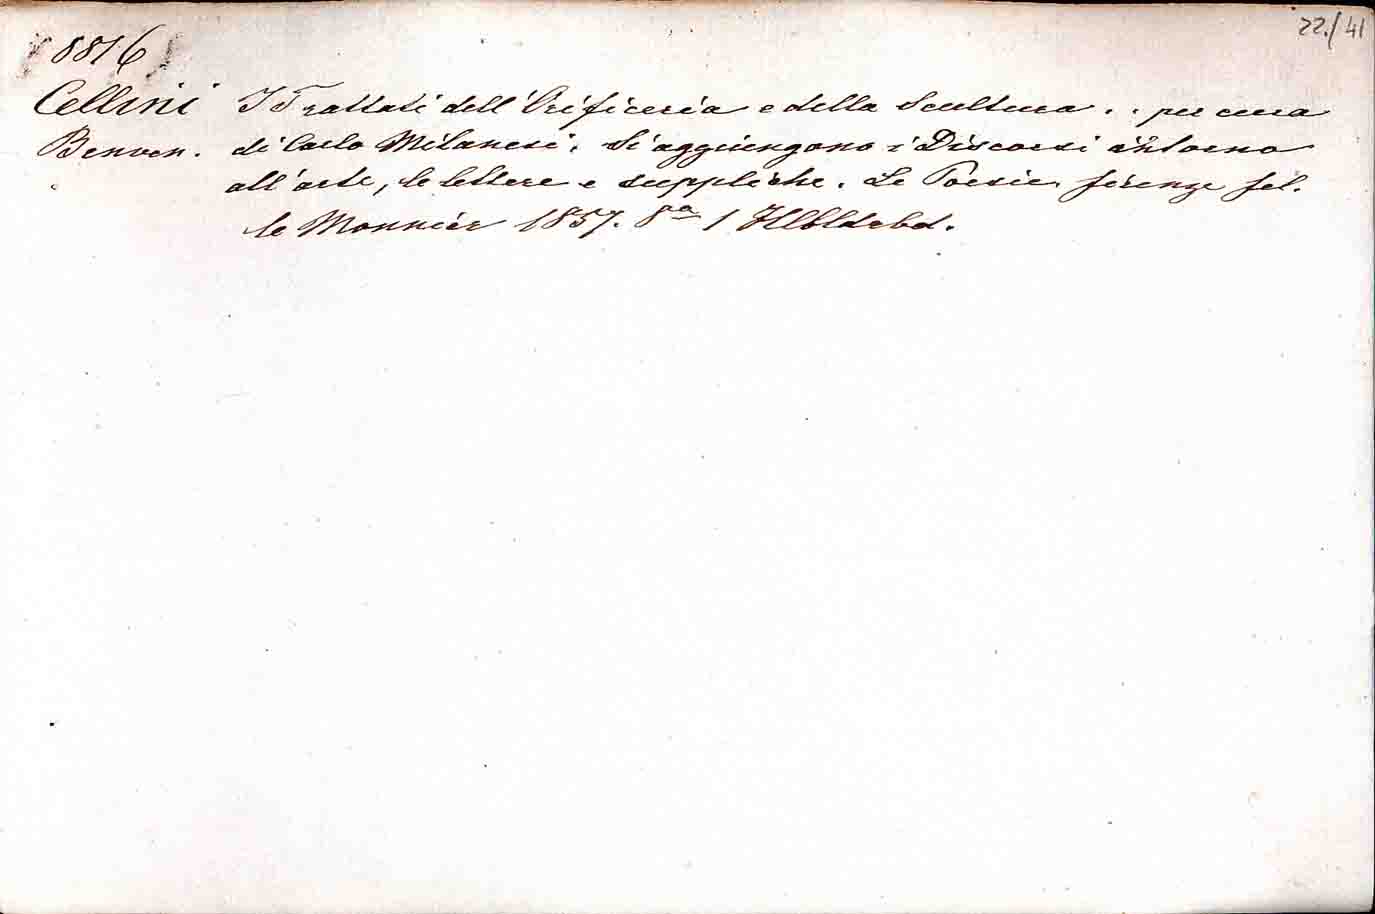 22./41
8816
Cellini I Trattati dell'Orificeria e della Scultura . . per cura
Benven. di Carlo Milanesi. Si aggiungono i Discorsi intorno
all'arte, le lettere e suppliche. Le Poesie. firenze fel.
le Monnier 1857. 8ª 1 Hlbldrbd.